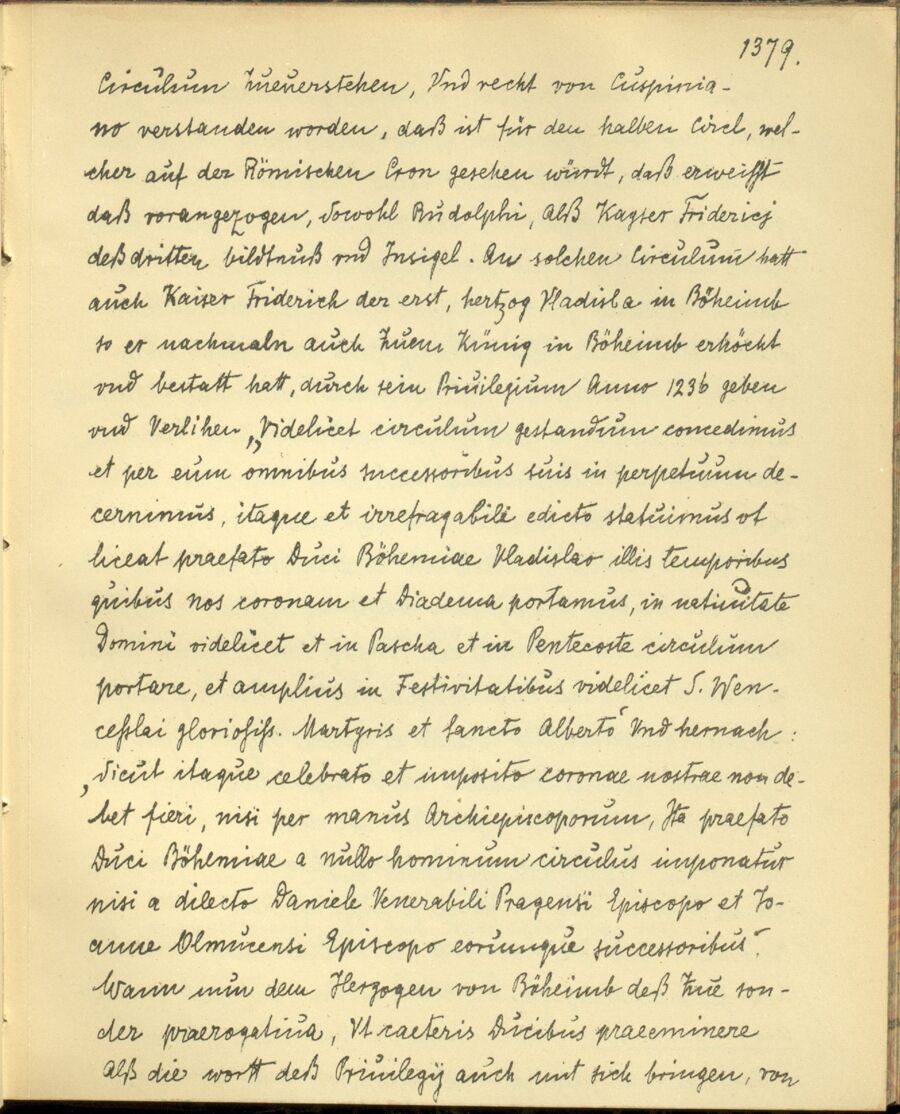 1379.
Circulum Zueuerstehen, Vnd recht von Cuspinia-
no verstanden worden, daß ist für den halben Circl, wel-
cher auf der Römischen Cron gesehen würdt, daß erweißt
daß vorangezogen, sowohl Rudolphi, Alß Kayser Friderici
deß dritten bildtnuß vnd Insigel. An solchen Circulum hatt
auch Kaiser Friderich der erst, hertzog Vladisla in Böheimb
so er nachmaln auch Zuem Künig in Böheimb erhöcht
vnd bestatt hatt, durch sein Priuilegium Anno 1236 geben
vnd Verlihen „Videlicet circulum gestandum concedimus
et per eum omnibus successoribus suis in perpetuum de-
cernimus, itaque et irrefragabili edicto statuimus vt
liceat praefato Duci Böhemiae Vladislao illis temporibus
quibus nos coronam et Diadema portamus, in natiuitate
Domini videlicet et in Pascha et in Pentecoste circulum
portare, et amplius in Festivitatibus videlicet S. Wen-
ceßlai glorioſiſs. Martyris et sancto Alberto“ Vnd hernach:
„Sicut itaque celebrato et imposito coronae nostrae non de-
bet fieri, nisi per manus Archiepiscoporum, Ita praefato
Duci Böhemiae a nullo hominum circulus imponatur
nisi a dilecto Daniele Venerabili Pragensi Episcopo et Jo-
anne Olmucensi Episcopo eorumque successoribus“.
Wann nun dem Herzogen von Böheimb deß Zue son-
der praerogatiua, Vt caeteris Ducibus praeeminere
Alß die wortt deß Priuilegij auch mit sich bringen, von